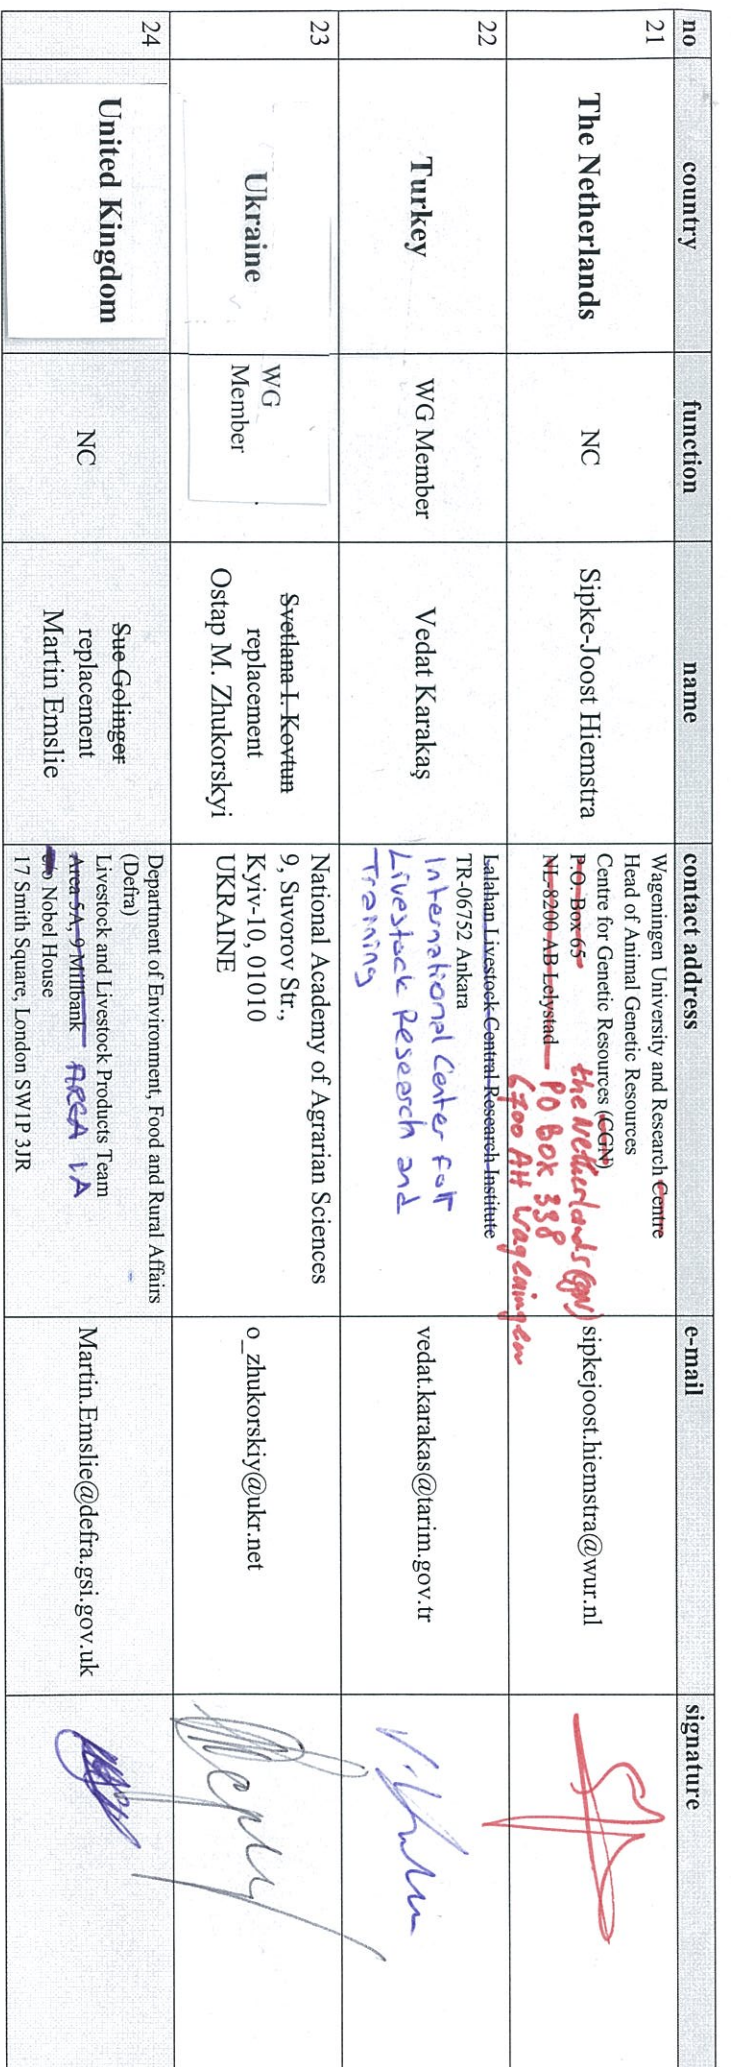 no country function name contact address e-mail signature
21 The Netherlands NC Sipke-Joost Hiemstra
Wageningen University and Research Centre
Head of Animal Genetic Resources
Centre for Genetic Resources (CGN)
the Netherlands (CGN)
P.O. Box 65
PO Box 338
NL-8200 AB Lelystad
6700 AH Wageningen
sipkejoost.hiemstra@wur.nl
22 Turkey WG Member Vedat Karakaş
Lalahan Livestock Central Research Institute
TR-06752 Ankara
International Center for
Livestock Research and
Training
vedat.karakas@tarim.gov.tr
23 Ukraine
WG
Member
Svetlana I. Kovtun
replacement
Ostap M. Zhukorskyi
National Academy of Agrarian Sciences
9, Suvorov Str.,
Kyiv-10, 01010
UKRAINE
o_zhukorskiy@ukr.net
24 United Kingdom NC
Sue Golinger
replacement
Martin Emslie
Department of Environment, Food and Rural Affairs
(Defra)
Livestock and Livestock Products Team
Area 5A, 9 Millbank AREA 1A
Nobel House
17 Smith Square, London SW1P 3JR
Martin.Emslie@defra.gsi.gov.uk